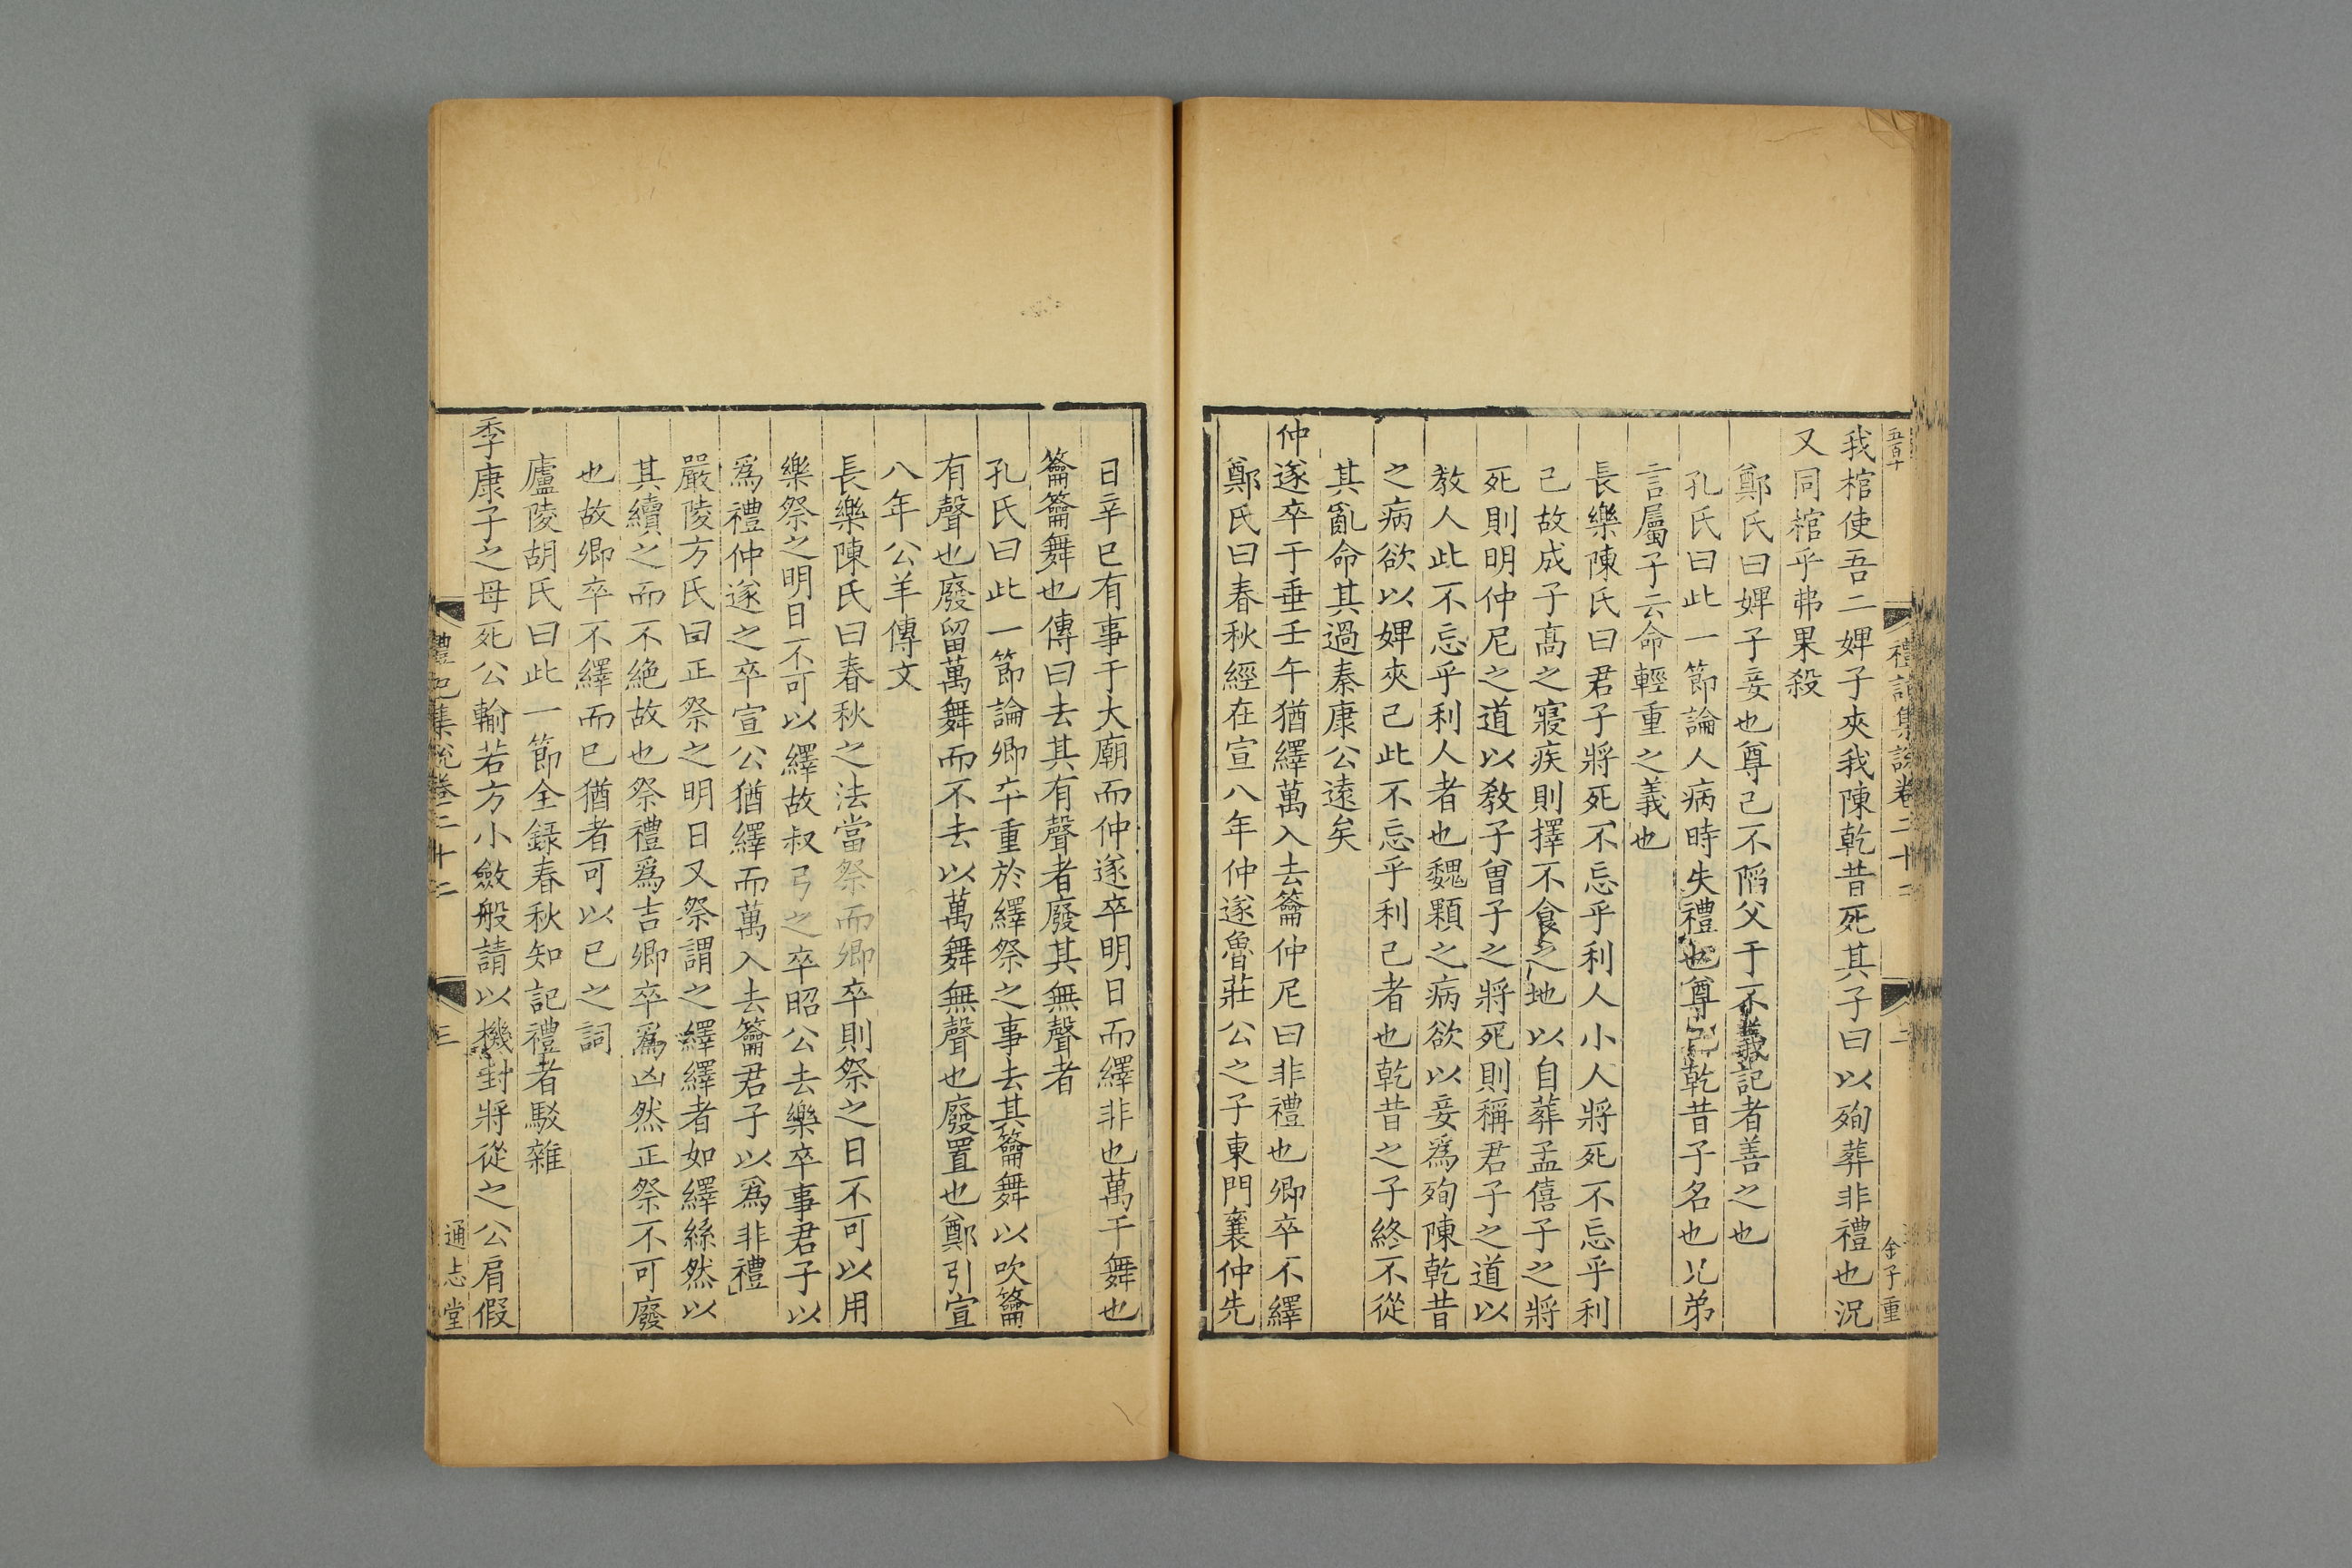 五百十
禮記集說卷二十二
二
金子重
我棺使吾二婢子夾我陳乾昔死其子曰以殉葬非禮也況
又同棺乎弗果殺
鄭氏曰婢子妾也尊己不陷父于不義記者善之也
孔氏曰此一節論人病時失禮也尊己乾昔子名也兄弟
言屬子云命輕重之義也
長樂陳氏曰君子將死不忘乎利人小人將死不忘乎利
己故成子髙之寢疾則擇不食之地以自葬孟僖子之將
死則明仲尼之道以敎子曾子之將死則稱君子之道以
敎人此不忘乎利人者也魏顆之病欲以妾爲殉陳乾昔
之病欲以婢夾己此不忘乎利己者也乾昔之子終不從
其亂命其過秦康公遠矣
仲遂卒于垂壬午猶繹萬入去籥仲尼曰非禮也卿卒不繹
鄭氏曰春秋經在宣八年仲遂魯莊公之子東門襄仲先
日辛巳有事于大廟而仲遂卒明日而繹非也萬干舞也
籥籥舞也傳曰去其有聲者廢其無聲者
孔氏曰此一節論卿卒重於繹祭之事去其籥舞以吹籥
有聲也廢留萬舞而不去以萬舞無聲也廢置也鄭引宣
八年公羊傳文
長樂陳氏曰春秋之法當祭而卿卒則祭之日不可以用
樂祭之明日不可以繹故叔弓之卒昭公去樂卒事君子以
爲禮仲遂之卒宣公猶繹而萬入去籥君子以爲非禮
嚴陵方氏曰正祭之明日又祭謂之繹繹者如繹絲然以
其續之而不絶故也祭禮爲吉卿卒爲凶然正祭不可廢
也故卿卒不繹而已猶者可以已之詞
廬陵胡氏曰此一節全録春秋知記禮者駁雜
季康子之母死公輸若方小斂般請以機封將從之公肩假
禮記集說卷二十二
三
通志堂